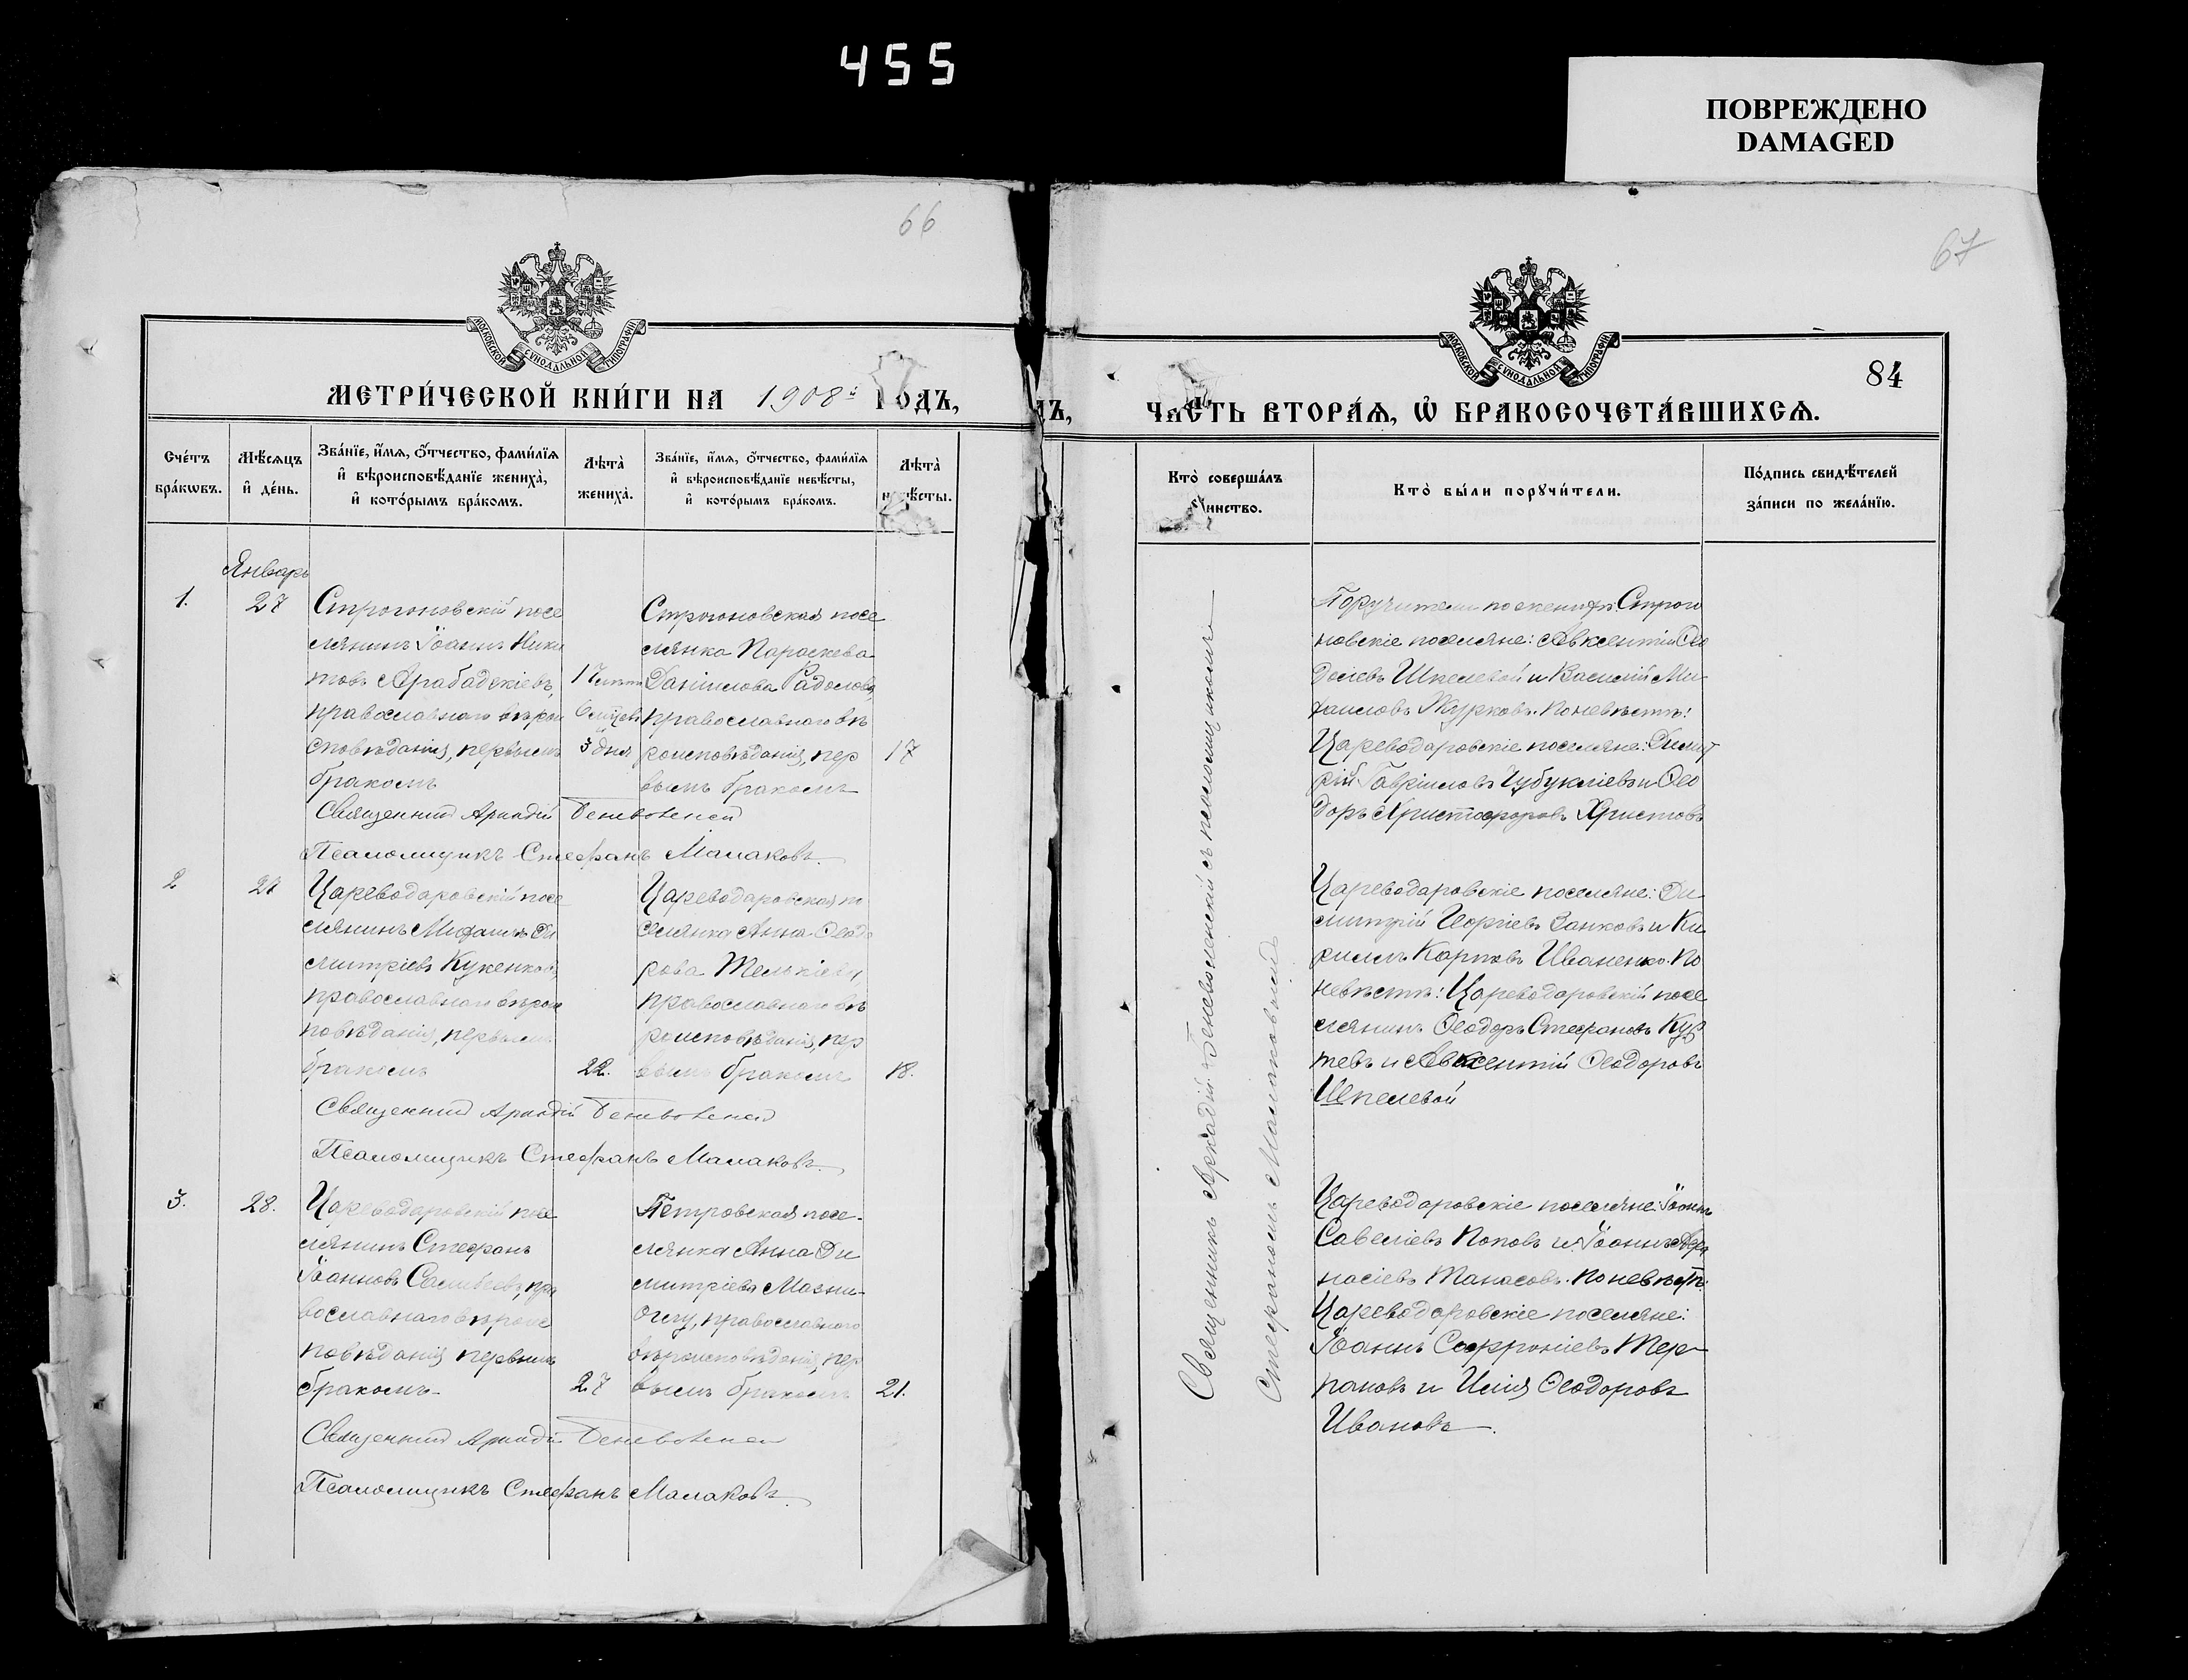 455
ПОВРЕЖДЕНО
DAMAGED
66
МОСКОВСКОЙ СѴНОДАЛЬНОЙ ТИПОГРАФІИ
МЕТРИ́ЧЕСКОЙ КНИ́ГИ НА 1908й ГОДЪ,
Сче́тъ бра́кѡвъ.
Мѣ́сяцъ и҆ де́нь.
Зва́нїе, и҆́мѧ, ѻ҆́тчество, фами́лїѧ и҆ вѣроисповѣ́данїе жениха̀, и҆ кото́рымъ бра́комъ.
Лѣта̀ жениха̀.
Зва́нїе, и҆́мѧ, ѻ҆́тчество, фами́лїѧ и҆ вѣроисповѣ́данїе невѣ́сты, и҆ кото́рымъ бра́комъ.
Лѣта̀ невѣ́сты.
Январь
1.
27
Строгоновскій посе
лянинъ Іоаннъ Ники
товъ Арабаджіевъ,
православнаго вѣрои
сповѣданія, первымъ
бракомъ
17 лѣтъ
6 мѣсяц.
3 дня
Строгоновская посе
лянка Параскева
Даніилова Радолова,
православнаго вѣ
роисповѣданія, пер
вымъ бракомъ
17
Священникъ Аркадій
Псаломщикъ Стефанъ Малаковъ.
2
27
Цареводаровскій посе
лянинъ Михаилъ Ди
митріевъ Кукенковъ,
православнаго вѣроис
повѣданія, первымъ
бракомъ
22.
Цареводаровская по
селянка Анна Ѳеодо
рова
православнаго вѣ
роисповѣданія, пер
вымъ бракомъ
18.
Священникъ Аркадій
Псаломщикъ Стефанъ Малаковъ.
3.
28.
Цареводаровскій посе
лянинъ Стефанъ
Іоанновъ пра
вославнаго вѣроис
повѣданія первымъ
бракомъ
27
Петровская посе-
лянка Анна Ди
митріева Мазни-
оглу, православнаго
вѣроисповѣданія, пер
вымъ бракомъ
21.
Священникъ Аркадій
Псаломщикъ Стефанъ Малаковъ.
67
МОСКОВСКОЙ СѴНОДАЛЬНОЙ ТИПОГРАФІИ
84
ДЪ,
ЧА́СТЬ ВТОРА́Ѧ, Ѽ БРАКОСОЧЕТА́ВШИХСѦ.
Кто̀ соверша́лъ
инство.
Кто̀ бы́ли порꙋчи́тели.
По́дпись свидѣ́телей за́писи по жела́нїю.
Священникъ Аркадій съ псаломщикомъ
Стефаномъ Малаковымъ
Поручители по женихѣ: Строго
новскіе поселяне: Авксентій Ѳео
досіевъ Шпелевой и Василій Ми
хаиловъ Журковъ. По невѣстѣ:
Цареводаровскіе поселяне: Димит
рій Гавріиловъ Чубукліевъ и Ѳео
доръ Христофоровъ Христовъ
Цареводаровскіе поселяне: Ди
митрій Георгіевъ Занковъ и Ки
риллъ Карповъ Иваненко. По
невѣстѣ: Цареводаровскій посе
лянинъ Ѳеодоръ Стефановъ Кур
тевъ и Авксентій Ѳеодоровъ
Шпелевой
Цареводаровскіе поселяне: Іоаннъ
Савеліевъ Поповъ и Іоаннъ Аѳа
насіевъ Танасовъ. По невѣстѣ:
Цареводаровскіе поселяне:
Іоаннъ Софроніевъ Тер
пановъ и Илія Ѳеодоровъ
Ивановъ.